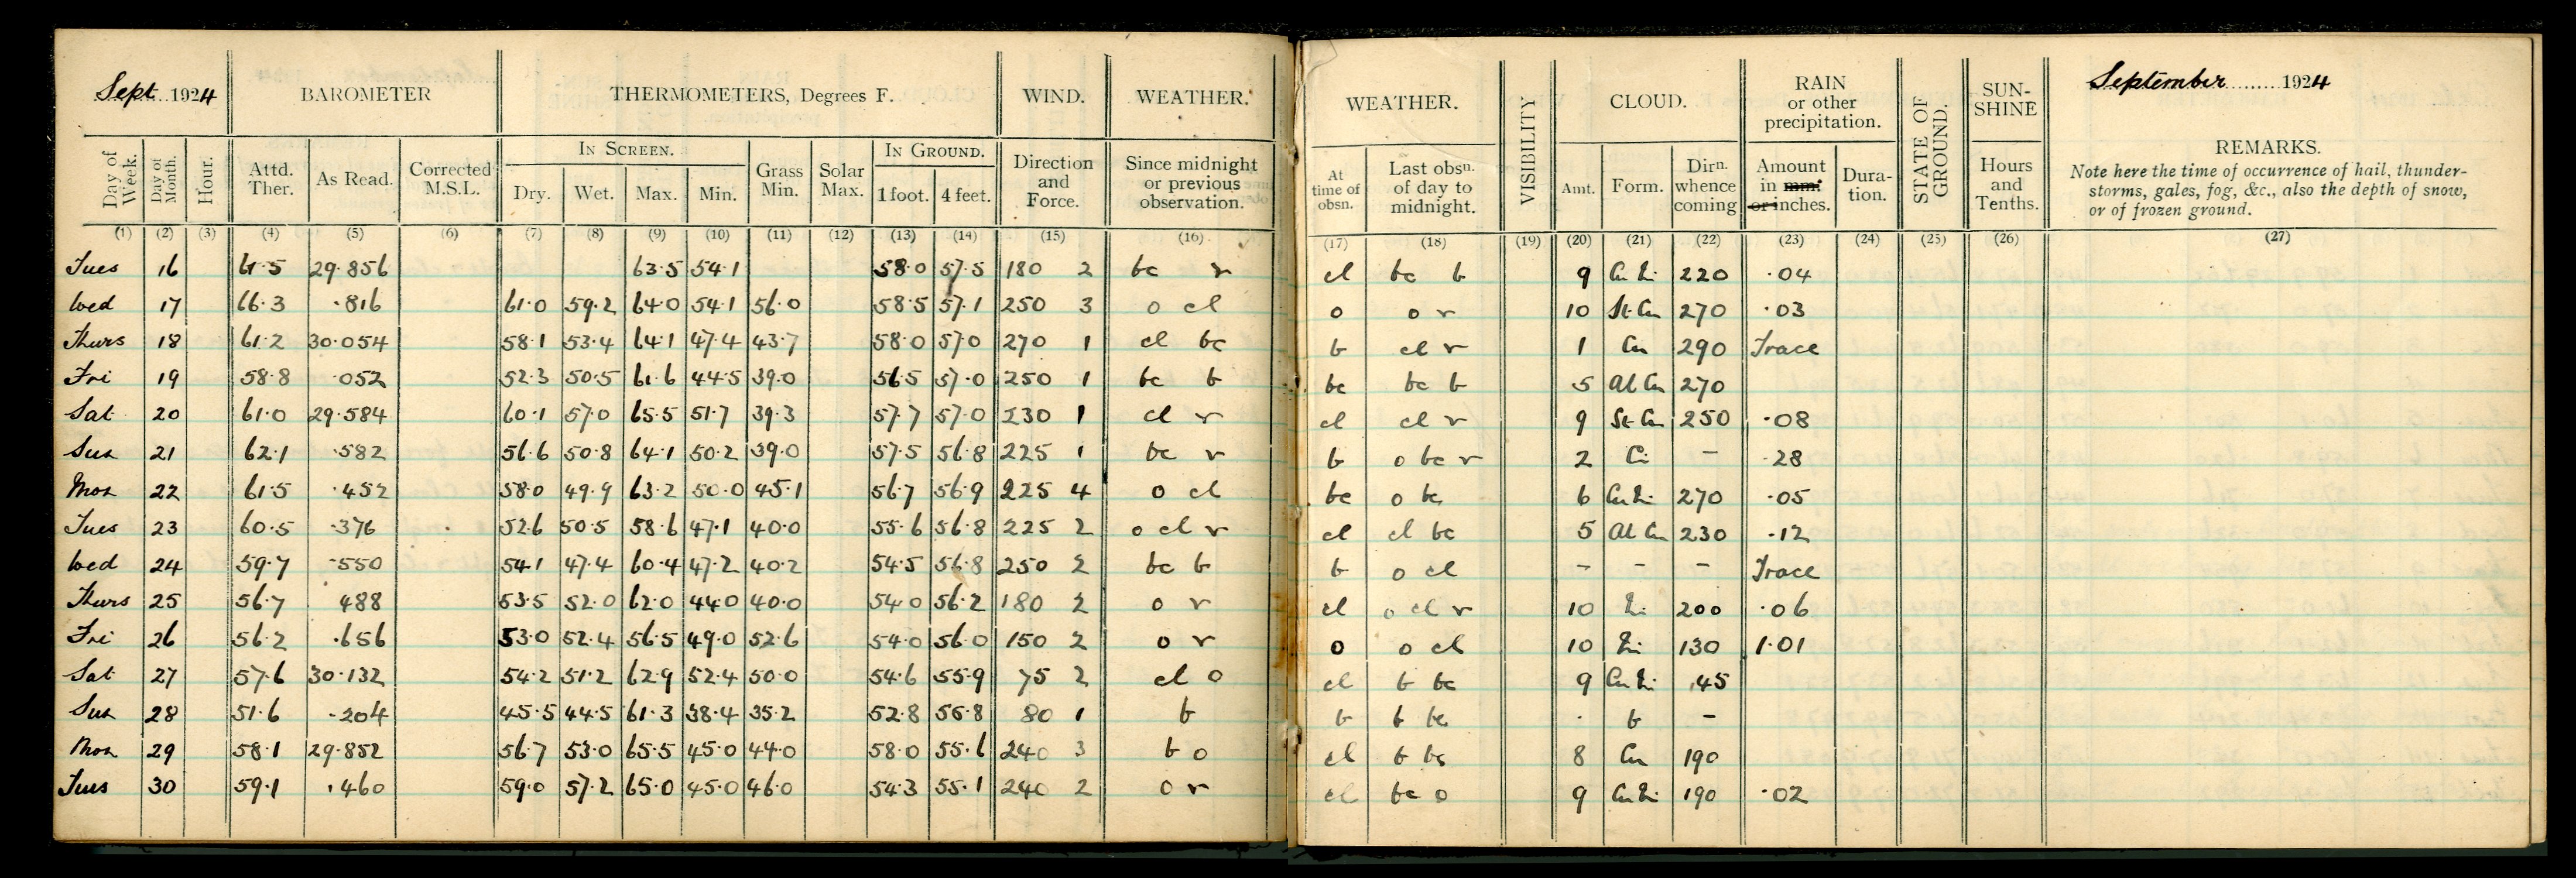 Sept. 1924 BAROMETER THERMOMETERS, Degrees F. WIND. WEATHER. WEATHER. VISIBILITY CLOUD. RAIN or other precipitation. STATE OF GROUND. SUN-SHINE September 1924
Day of Week. Day of Month. Hour. Attd. Ther. As Read. Corrected M.S.L. IN SCREEN. Dry. Wet. Max. Min. Grass Min. Solar Max. IN GROUND. 1 foot. 4 feet. Direction and Force. Since midnight or previous observation. At time of obsn. Last obsn. of day to midnight. Amt. Form. Dirn. whence coming Amount in mm. or inches. Dura-tion. Hours and Tenths. REMARKS.
Note here the time of occurrence of hail, thunder-
storms, gales, fog, &c., also the depth of snow,
or of frozen ground.
(1) (2) (3) (4) (5) (6) (7) (8) (9) (10) (11) (12) (13) (14) (15) (16) (17) (18) (19) (20) (21) (22) (23) (24) (25) (26) (27)
Tues 16 61.5 29.856 63.5 54.1 58.0 57.5 180 2 bc r cl bc b 9 Cu Ni 220 .04
Wed 17 66.3 .816 61.0 59.2 64.0 54.1 56.0 58.5 57.1 250 3 o cl o o r 10 St-Cu 270 .03
Thurs 18 61.2 30.054 58.1 53.4 64.1 47.4 43.7 58.0 57.0 270 1 cl bc b cl r 1 Cu 290 Trace
Fri 19 58.8 .052 52.3 50.5 61.6 44.5 39.0 56.5 57.0 250 1 bc b bc bc b 5 Al Cu 270
Sat 20 61.0 29.584 60.1 57.0 65.5 51.7 39.3 57.7 57.0 230 1 cl r cl cl r 9 St-Cu 250 .08
Sun 21 62.1 .582 56.6 50.8 64.1 50.2 39.0 57.5 56.8 225 1 bc r b o bc r 2 Ci - .28
Mon 22 61.5 .452 58.0 49.9 63.2 50.0 45.1 56.7 56.9 225 4 o cl bc o bc 6 Cu Ni 270 .05
Tues 23 60.5 .376 52.6 50.5 58.6 47.1 40.0 55.6 56.8 225 2 o cl r cl cl bc 5 Al Cu 230 .12
Wed 24 59.7 .550 54.1 47.4 60.4 47.2 40.2 54.5 56.8 250 2 bc b b o cl - - - Trace
Thurs 25 56.7 488 53.5 52.0 62.0 44.0 40.0 54.0 56.2 180 2 o r cl o cl r 10 Ni 200 .06
Fri 26 56.2 .656 53.0 52.4 56.5 49.0 52.6 54.0 56.0 150 2 o r o o cl 10 Ni 130 1.01
Sat 27 57.6 30.132 54.2 51.2 62.9 52.4 50.0 54.6 55.9 75 2 cl o cl b bc 9 Cu Ni 45
Sun 28 51.6 .204 45.5 44.5 61.3 38.4 35.2 52.8 56.8 80 1 b b b bc . b -
Mon 29 58.1 29.852 56.7 53.0 65.5 45.0 44.0 58.0 55.6 240 3 b o cl b bc 8 Cu 190
Tues 30 59.1 .460 59.0 57.2 65.0 45.0 46.0 54.3 55.1 240 2 o r cl bc o 9 Cu Ni 190 .02